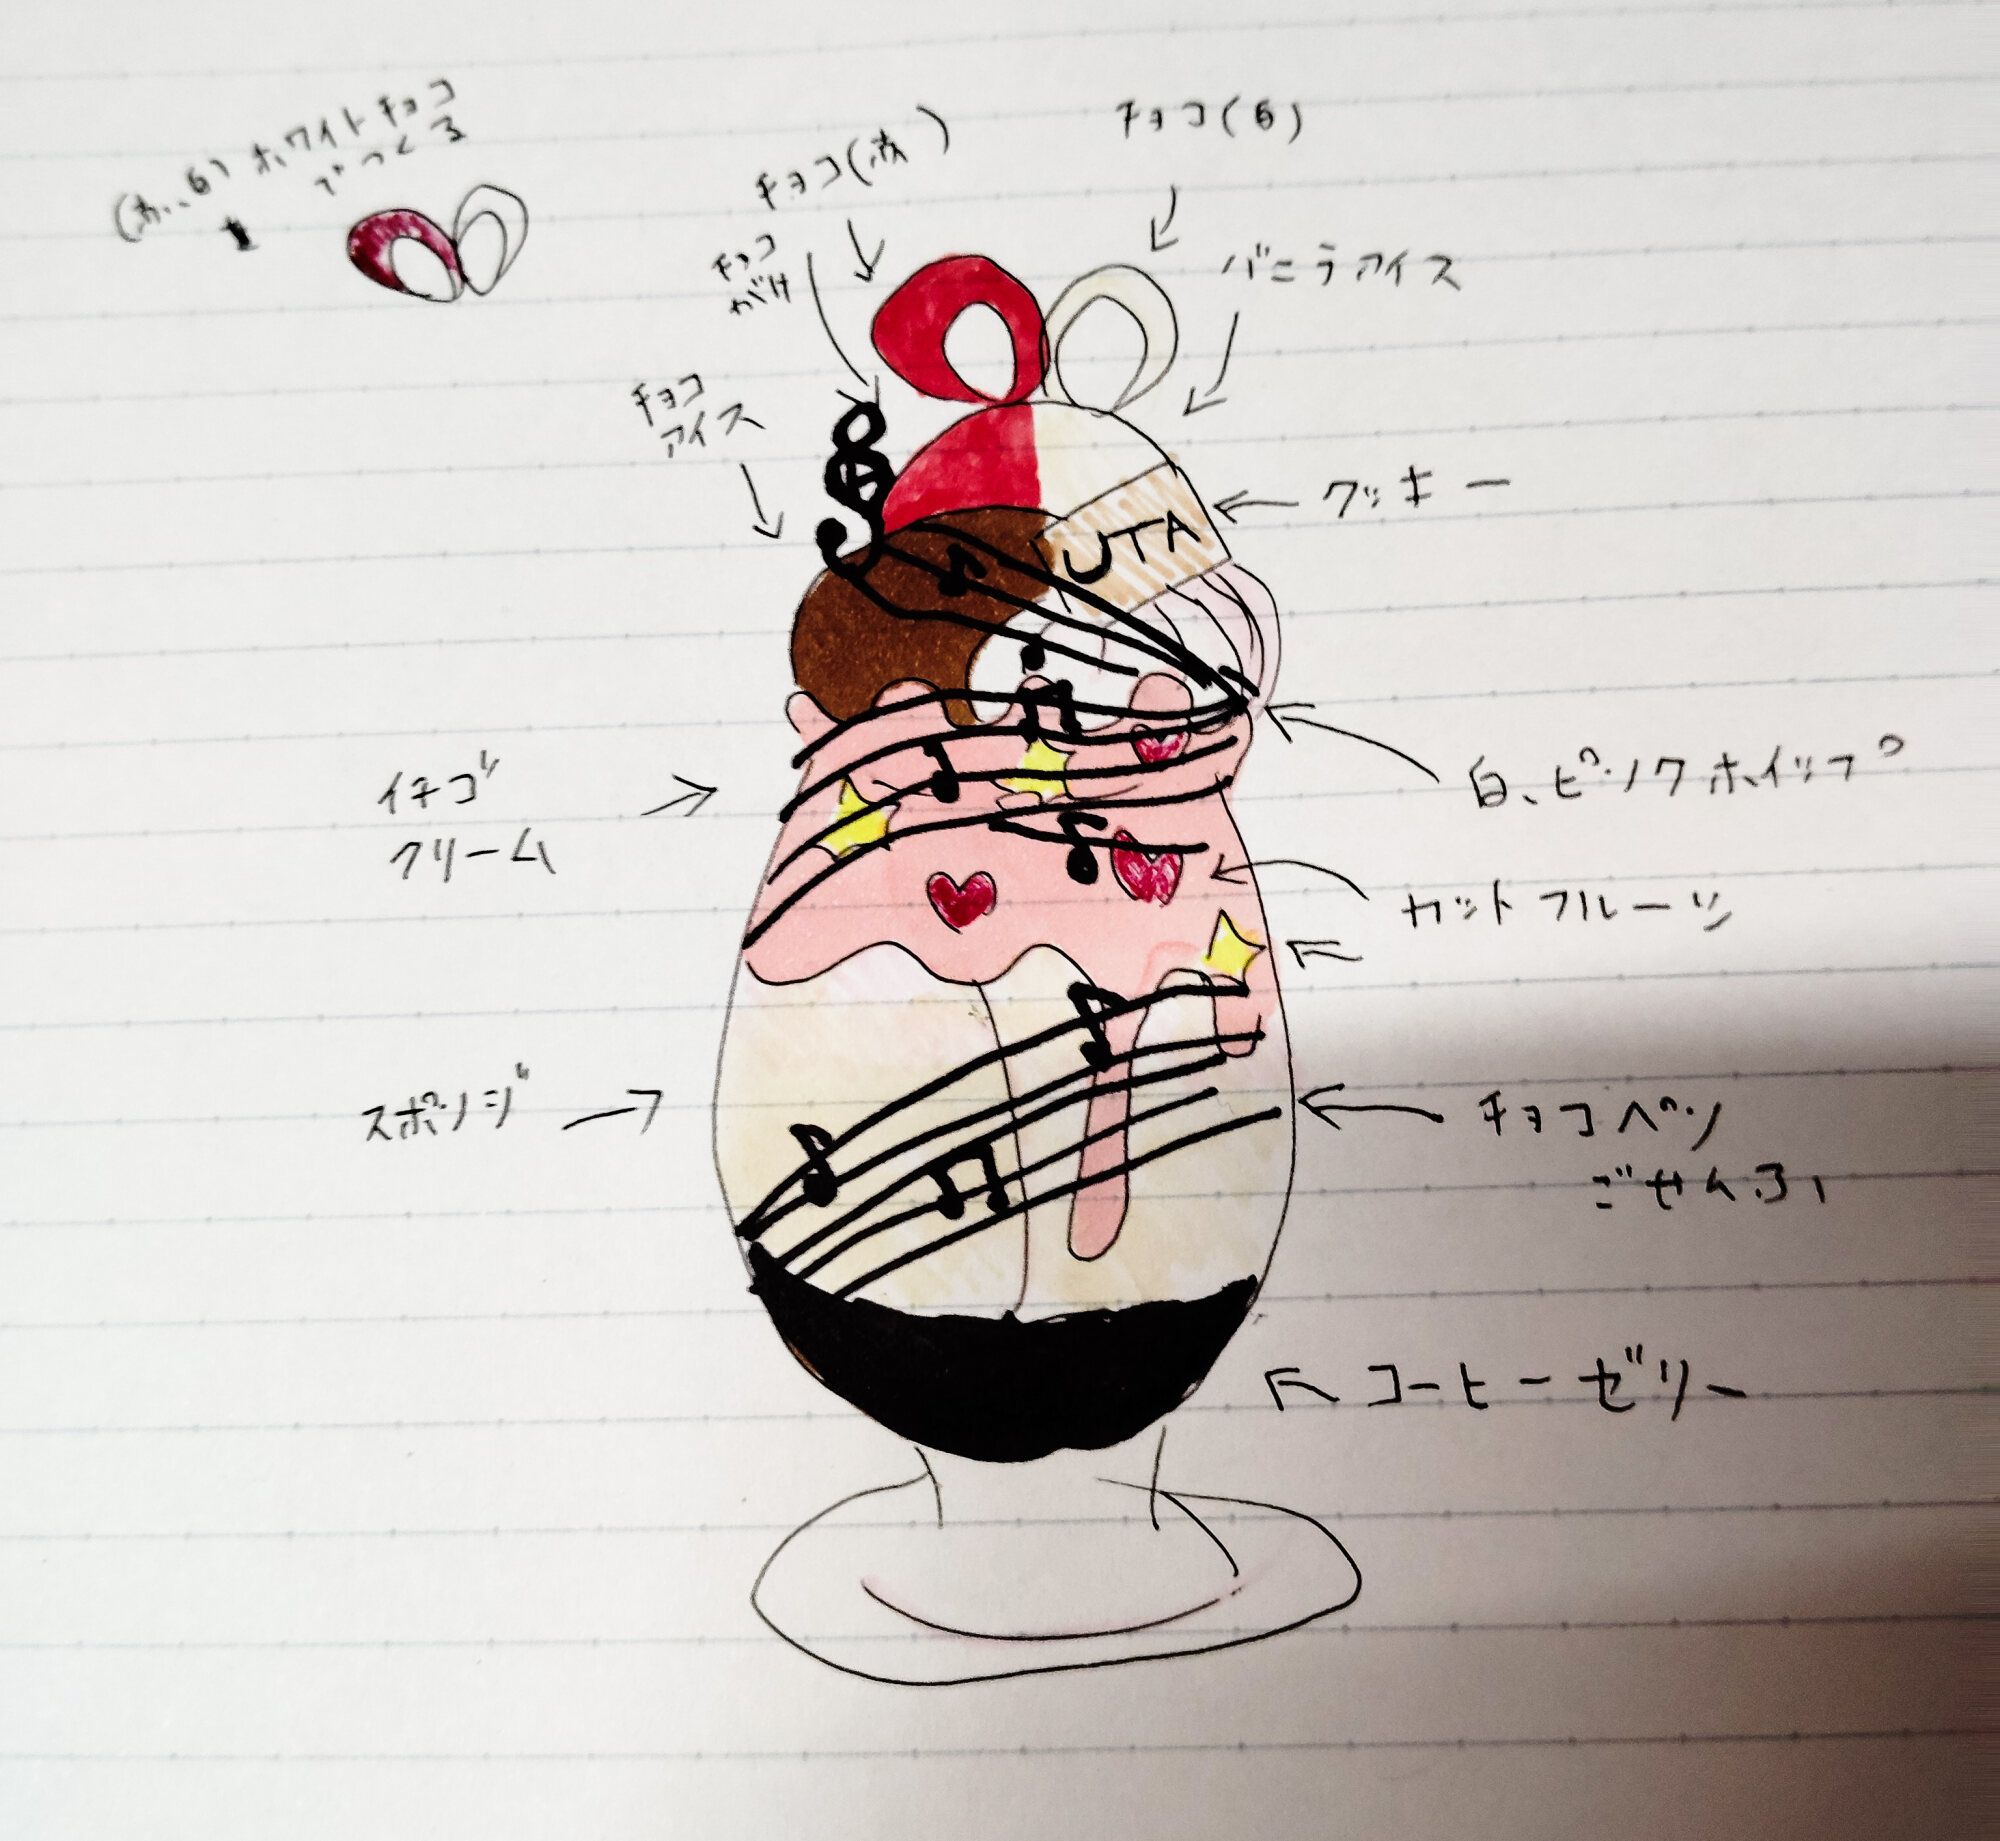 (赤、白) ホワイトチョコ
でつくる
チョコ(赤)
チョコ(白)
チョコ
がけ
バニラアイス
チョコ
アイス
クッキー
UTA
イチゴ
クリーム
白、ピンクホイップ
カットフルーツ
スポンジ
チョコペン
ごせんふ
コーヒーゼリー